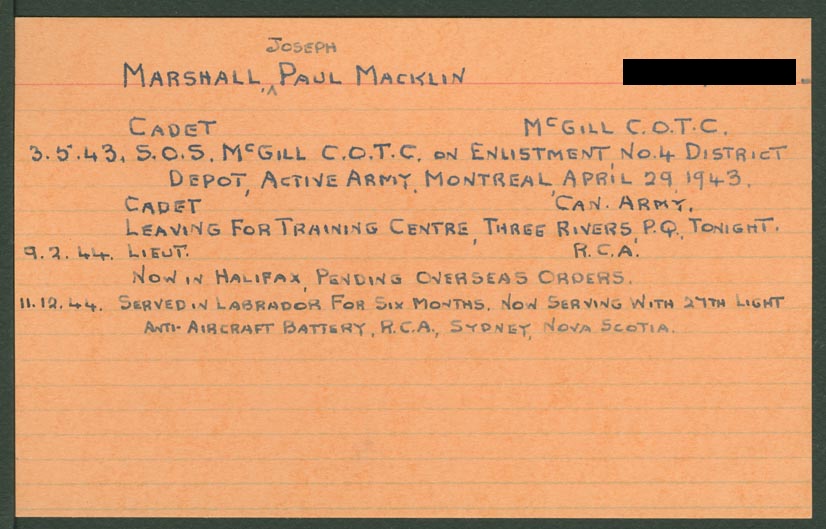 JOSEPH
MARSHALL, ^ PAUL MACKLIN
CADET McGILL C.O.T.C.
3.5.43. S.O.S. McGILL C.O.T.C. ON ENLISTMENT, NO.4 DISTRICT
DEPOT, ACTIVE ARMY, MONTREAL, APRIL 29, 1943.
CADET CAN. ARMY.
LEAVING FOR TRAINING CENTRE, THREE RIVERS, P.Q., TONIGHT.
9.2.44. LIEUT. R.C.A.
NOW IN HALIFAX, PENDING OVERSEAS ORDERS.
11.12.44. SERVED IN LABRADOR FOR SIX MONTHS. NOW SERVING WITH 27TH LIGHT
ANTI-AIRCRAFT BATTERY, R.C.A., SYDNEY, NOVA SCOTIA.